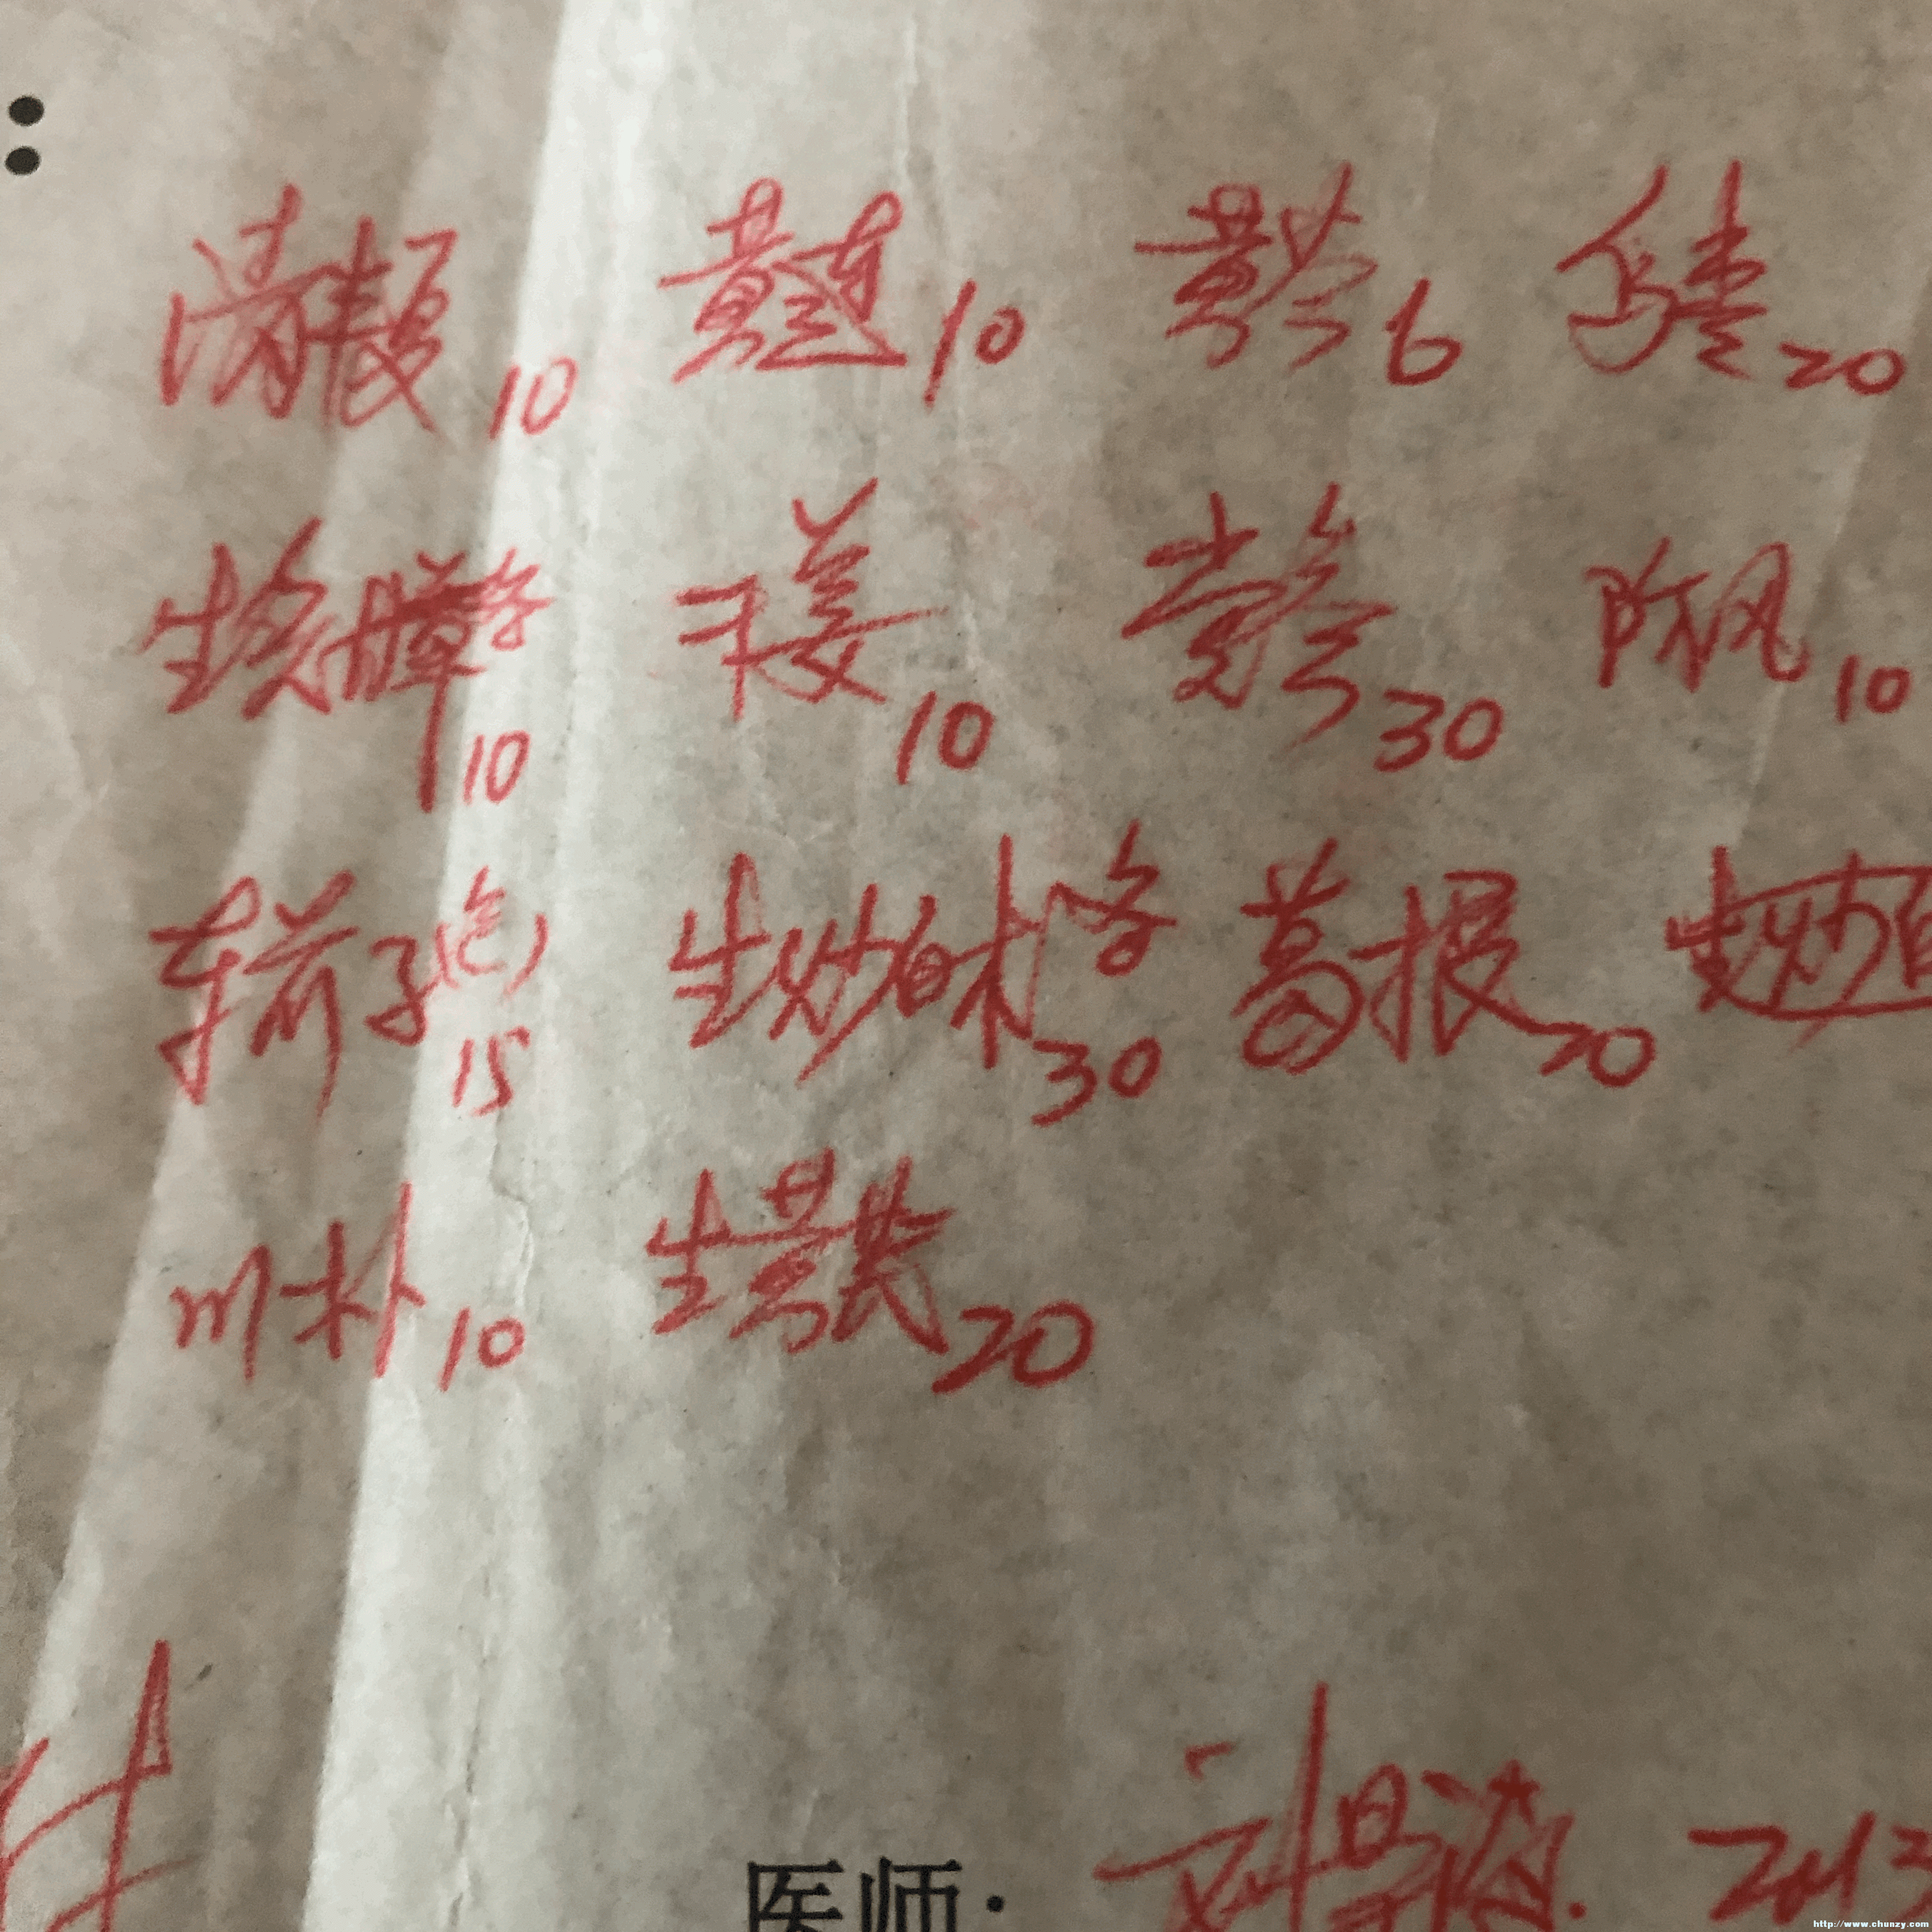 :
清半夏10 黄连10 黄芩6 20
生炙草各10 干姜10 党参30 防风10
车前子(包)15 生炒白术各30 葛根20 生炒
川朴10 生黄芪20
医师: 刘 2013
http://www.chunzy.com